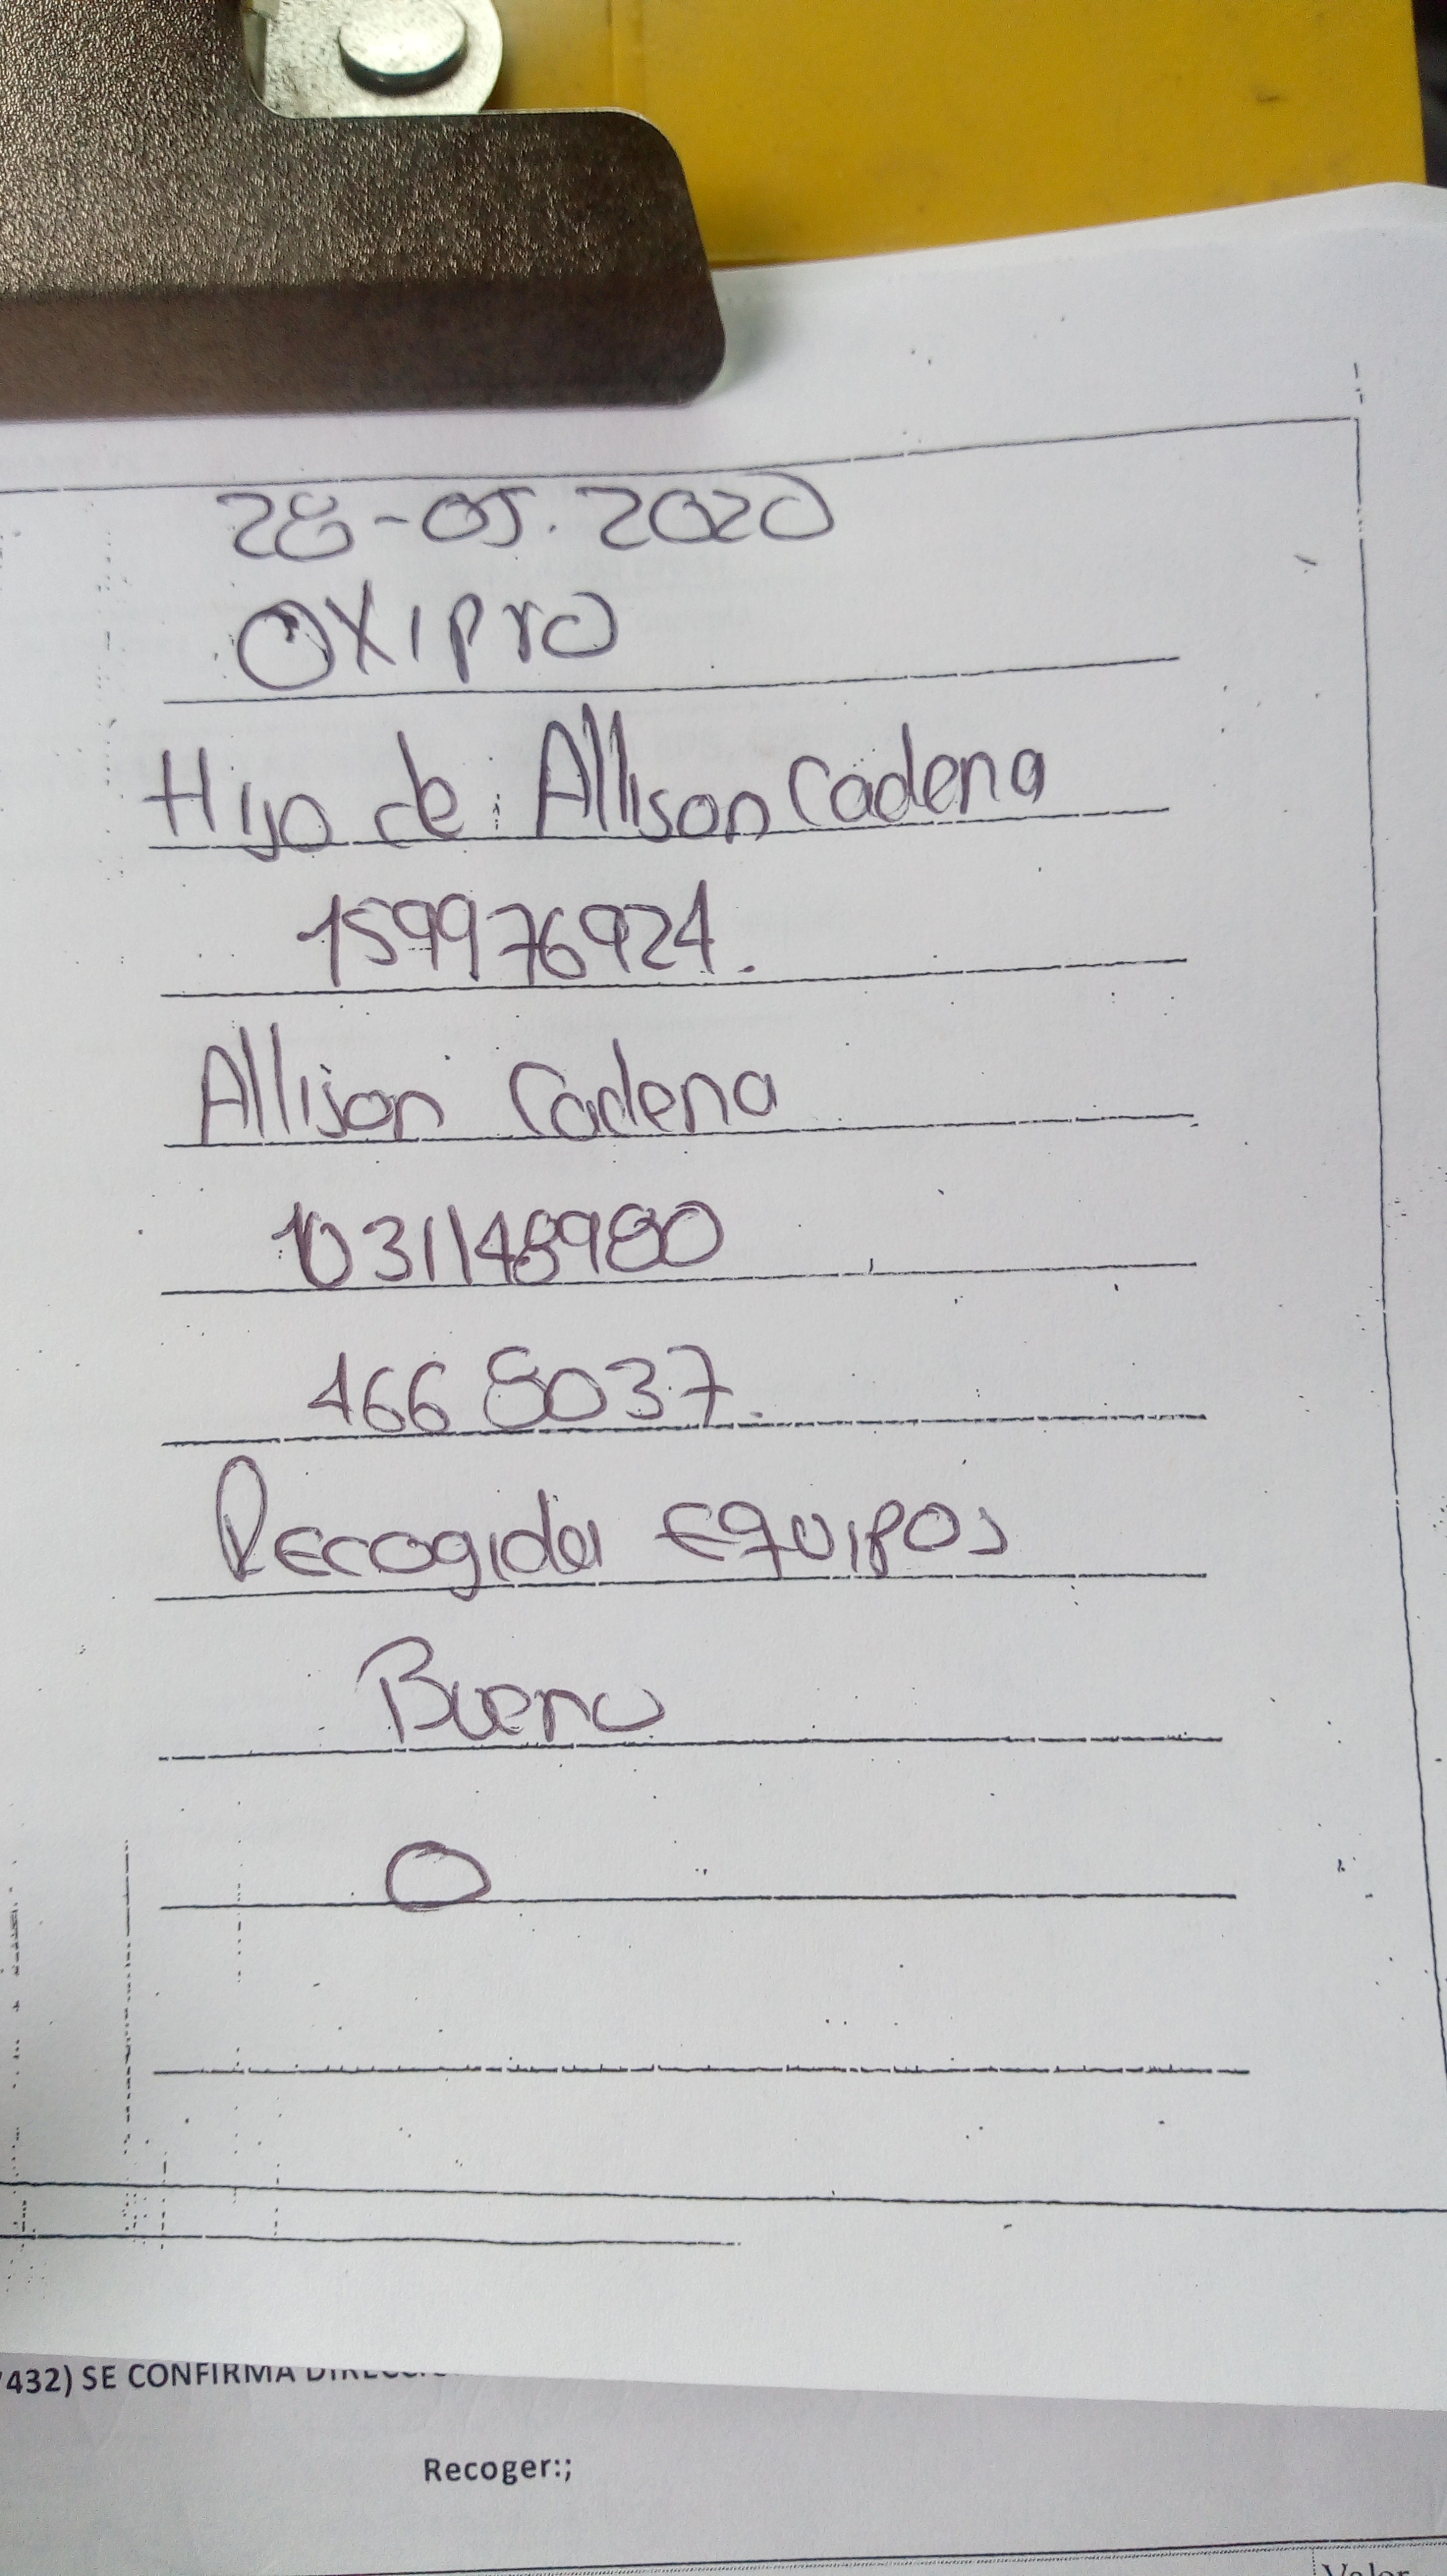 28-05.2020
OXIPRO
Hijo de: Allison Cadena
159976924.
Allison Cadena
1031148980
4668037.
Recogida Equipos
Bueno
0
7432) SE CONFIRMA
Recoger:;
Valor